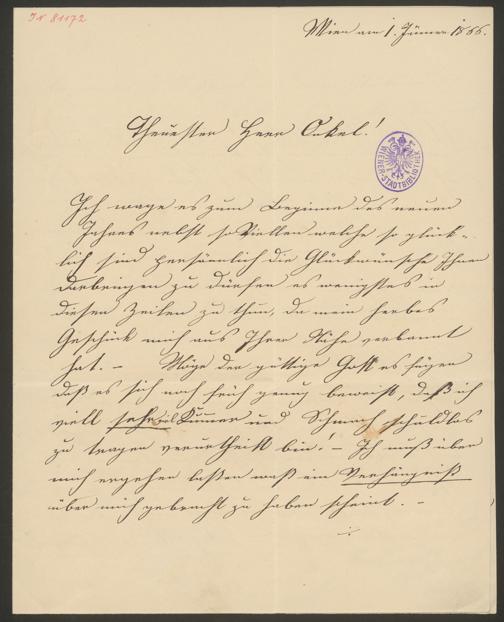 IN 81172
Wien am 1. Jänner 1866.
Theuerster Herr Onkel!
WIENER-STADTBIBLIOTHEK
Ich wage es zum Beginne des neuen
Jahres nebst so Viellen welche so glück-
lich sind persönnlich die Glückwünsche Ihnen
darbringen zu dürfen es wenigstes in
diesen Zeilen zu thun, da mein herbes
Geschick mich aus Ihrer Nähe verbannt
hat. – Möge der güttige Gott es fügen
daß es sich noch früh genug beweist, daß ich
viell sehr viel Kummer und Schmach schuldlos
zu tragen verurtheilt bin! – Ich muß über
mich ergehen laßen was ein Verhängniß
über mich gebracht zu haben scheint. –